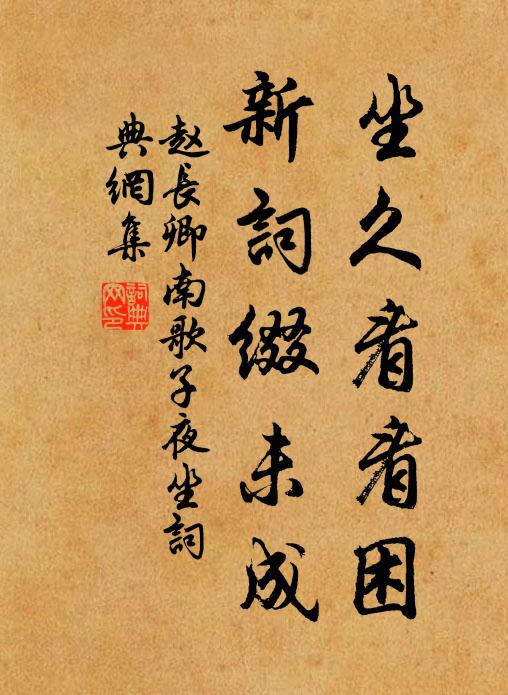 坐久看看困
新詞缀未成
赵長卿南歌子夜坐詞
典網集
詞典
网印